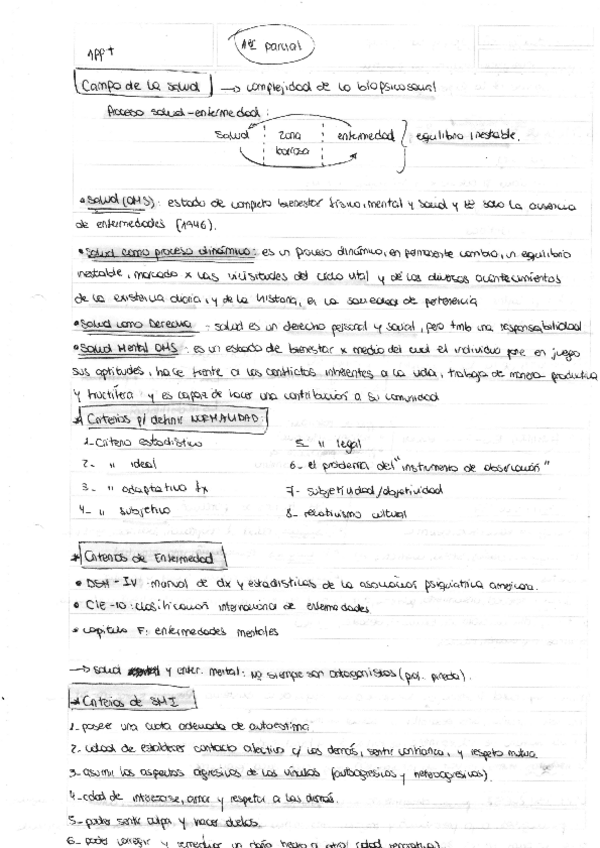 APP+
1er parcial
Campo de la salud → complejidad de lo biopsicosocial
Proceso salud-enfermedad:
Salud zona enfermedad equilibrio inestable.
borrosa
• Salud (OMS): estado de completo bienestar físico, mental y social y no solo la ausencia
de enfermedades (1946).
• Salud como proceso dinámico: es un proceso dinámico, en permanente cambio, un equilibrio
inestable, marcado x las vicisitudes del ciclo vital y de los diversos acontecimientos
de la existencia diaria, y de la historia, en la sociedad de pertenencia
• Salud como Derecho: salud es un derecho personal y social, pero tmb una responsabilidad
• Salud Mental OMS: es un estado de bienestar x medio del cual el individuo pone en juego
sus aptitudes, hace frente a los conflictos inherentes a la vida, trabaja de manera productiva
y fructífera y es capaz de hacer una contribución a su comunidad
* Criterios p/ definir NORMALIDAD:
1- Criterio estadístico 5- " legal
2- " ideal 6- el problema del "instrumento de observación"
3- " adaptativo fx 7- subjetividad/objetividad
4- " subjetivo 8- relativismo cultural
* Criterios de Enfermedad
• DSM-IV: manual de dx y estadísticas de la asociación psiquiatrica americana.
• CIE-10: clasificación internacional de enfermedades
• capitulo F: enfermedades mentales
→ salud y enfer. mental: no siempre son antagonistas
* Criterios de SMI
1- poseer una cuota adecuada de autoestima
2- cdad de establecer contacto afectivo c/ los demás, sentir confianza, y respeto mutuo
3- asumir los aspectos agresivos de los vínculos (autoagresivos y heteroagresivos).
4- cdad de interesarse, amar y respetar a los demás.
5- poder sentir culpa y hacer duelos.
6- poder corregir y remediar un daño hecho a otro